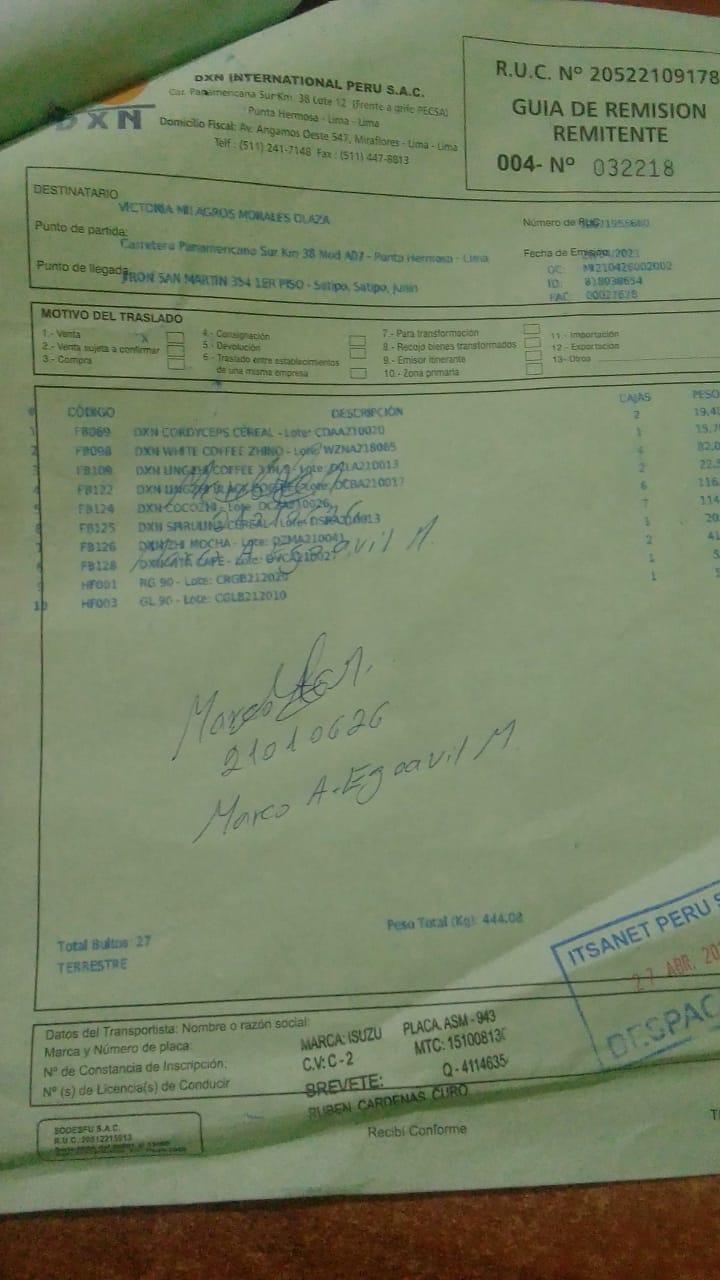 DXN INTERNATIONAL PERU S.A.C.
Car. Panamericana Sur Km. 38 Lote 12 (Frente a grifo PECSA)
Punta Hermosa - Lima - Lima
Domicilio Fiscal: Av. Angamos Oeste 547, Miraflores - Lima - Lima
Telf : (511) 241-7148 Fax : (511) 447-8813
DXN
R.U.C. Nº 20522109178
GUIA DE REMISION
REMITENTE
004- Nº 032218
DESTINATARIO
VICTORIA MILAGROS MORALES OLAZA
Número de RUC:
Punto de partida:
Carretera Panamericana Sur Km 38 Mod A07 - Punta Hermosa - Lima
Fecha de Emisión: /2021
Punto de llegada:
JIRON SAN MARTIN 354 1ER PISO - Satipo, Satipo, Junin
OC: MI210426002002
ID: 818038654
FAC: 00027678
MOTIVO DEL TRASLADO
1.- Venta X
2.- Venta sujeta a confirmar
3.- Compra
4.- Consignación
5.- Devolución
6.- Traslado entre establecimientos
de una misma empresa
7.- Para transformación
8.- Recojo bienes transformados
9.- Emisor itinerante
10.- Zona primaria
11.- Importación
12.- Exportación
13- Otros
# CÓDIGO DESCRIPCIÓN CAJAS PESO
1 FB069 DXN CORDYCEPS CEREAL - Lote: CDAA210020 2
2 FB098 DXN WHITE COFFEE ZHINO - Lote: WZNA218065 1
3 FB109 DXN LINGZHI COFFEE 3 IN 1 - Lote: 210013 4
4 FB122 DXN LINGZHI BLACK COFFEE - Lote: DCBA210017 2
5 FB124 DXN COCOZHI - Lote: DCZA210026 6
6 FB125 DXN SPIRULINA CEREAL - Lote: DSPA210013 7
7 FB126 DXN ZHI MOCHA - Lote: DZMA210041 1
8 FB128 CAFE - Lote: 2
9 HF001 RG 90 - Lote: CRGB212020 1
10 HF003 GL 90 - Lote: CGLB212010 1
Marco
21010626
Marco A. Egoavil M
Peso Total (Kg): 444.08
Total Bultos: 27
TERRESTRE
ITSANET PERU S
27 ABR. 20
DESPAC
Datos del Transportista: Nombre o razón social:
Marca y Número de placa: MARCA: ISUZU PLACA. ASM - 943
Nº de Constancia de Inscripción: C.V: C - 2 MTC: 15100813
Nº (s) de Licencia(s) de Conducir BREVETE: Q - 4114635
RUBEN CARDENAS CURO
Recibí Conforme
SODESFU S.A.C.
R.U.C.:20512215013